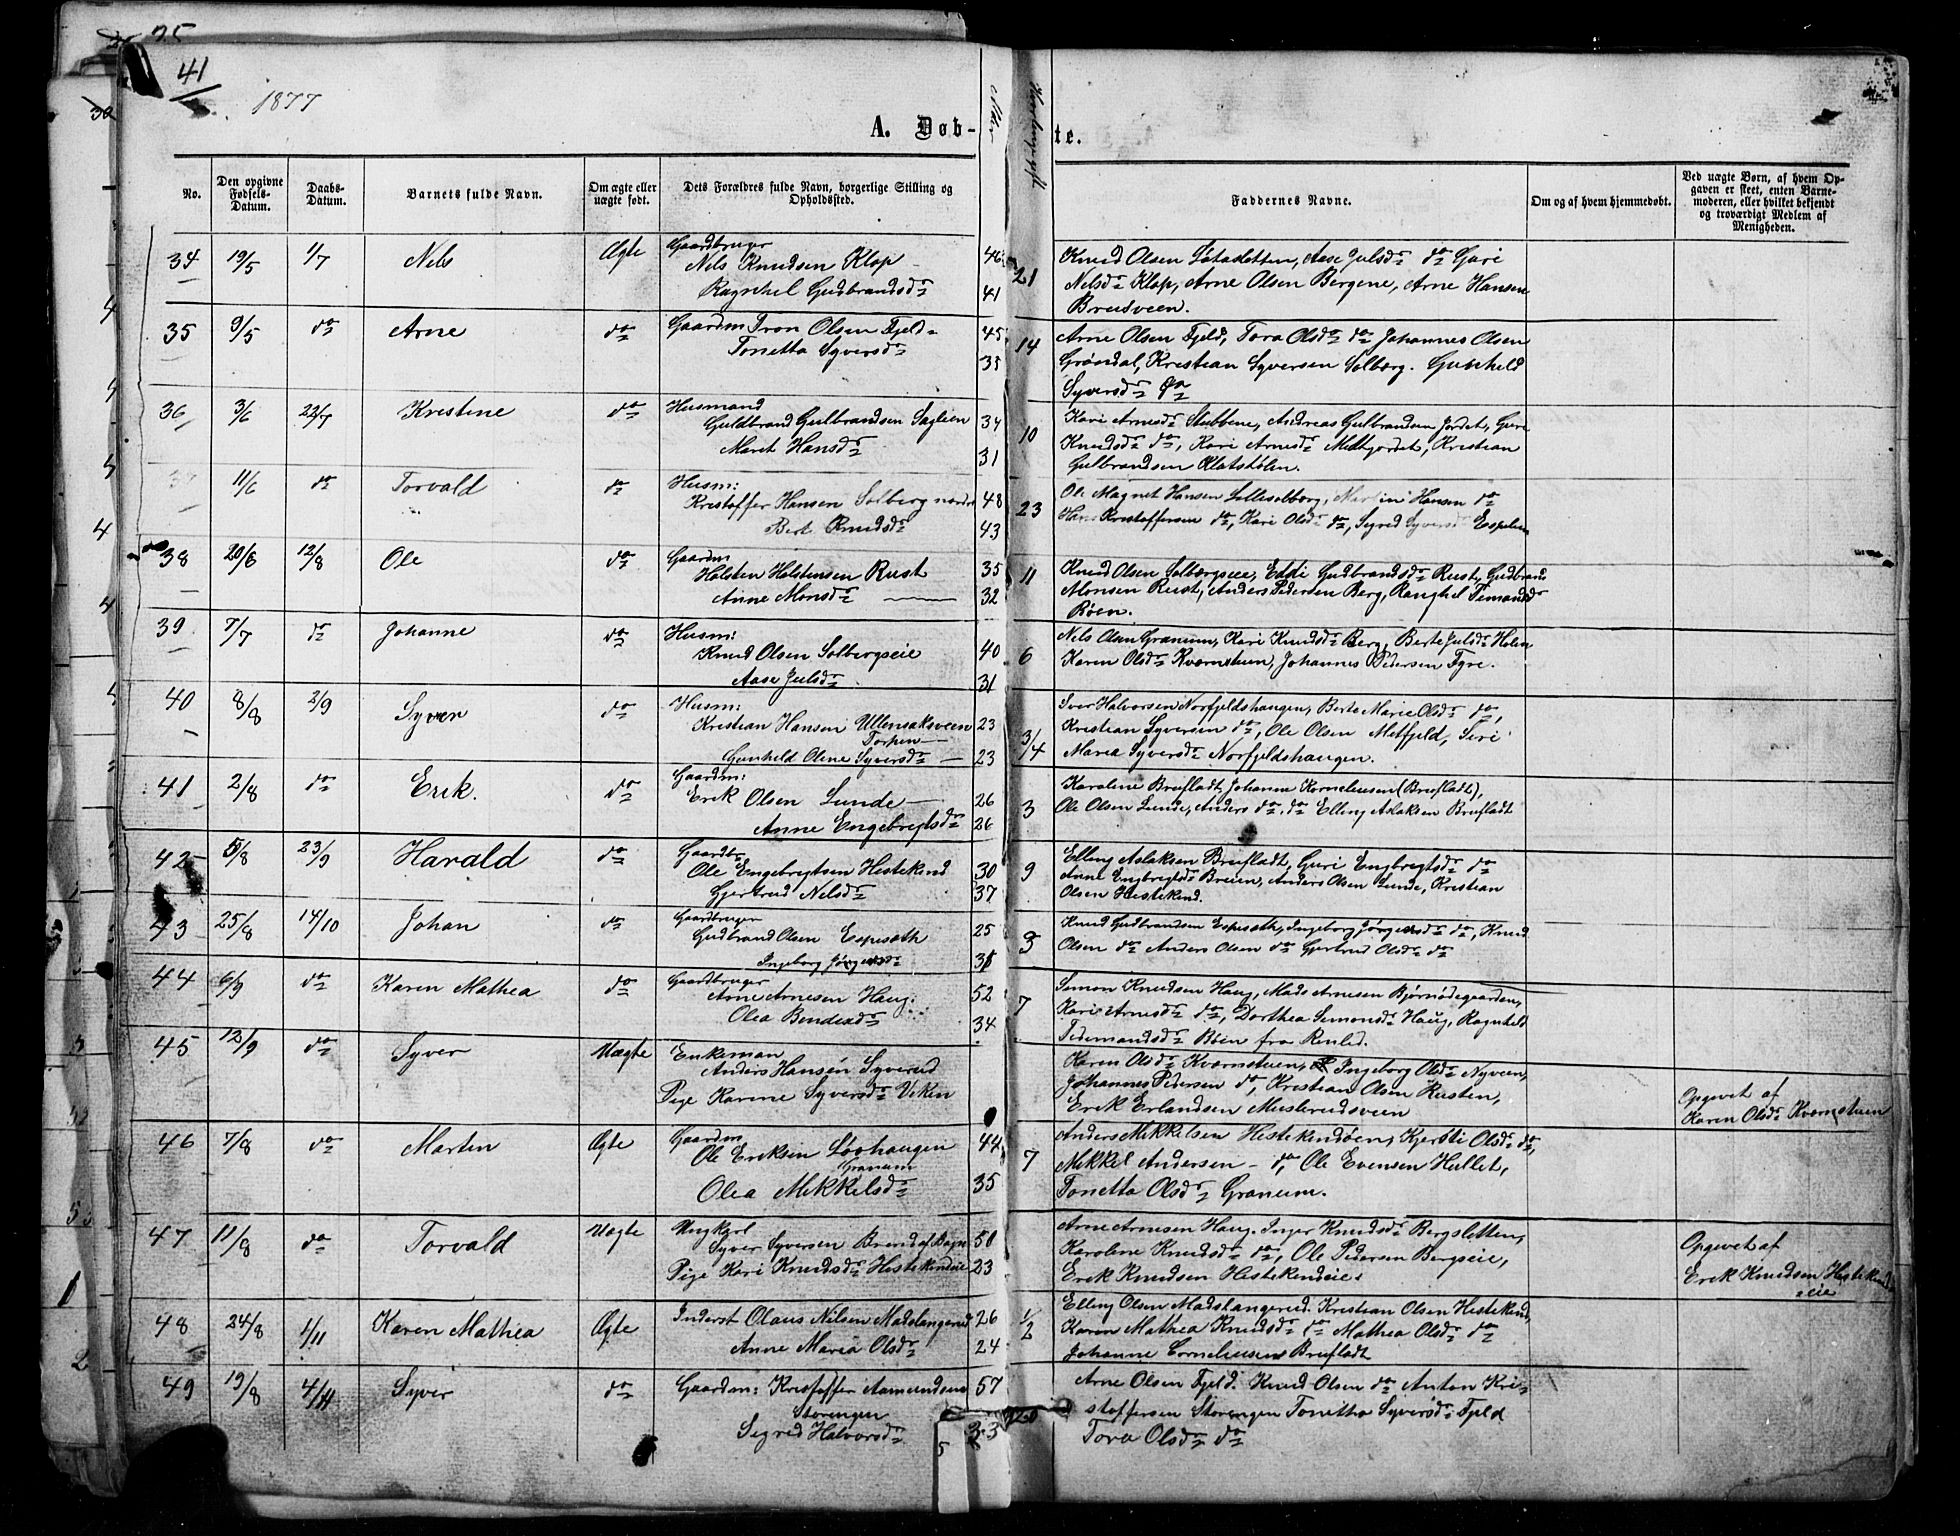 25
41
1877
A. Døb-
te.
Alder
No.
Den opgivne Fødsels-Datum.
Daabs-Datum.
Barnets fulde Navn.
Om ægte eller uægte født.
Dets Forældres fulde Navn, borgerlige Stilling og Opholdssted.
Faddernes Navne.
Om og af hvem hjemmedøbt.
Ved uægte Børn, af hvem Opgaven er skeet, enten Barnemoderen, eller hvilket bekjendt og troværdigt Medlem af Menigheden.
34 19/5 1/7 Nels Ægte Gaardbruger
Nels Knudsen Klop 46
Ragnhel Gudbrandsdr 41
21
Knud Olsen Søtasletten, Aase Julsdr do Gari
Nelsdr Klop, Arne Olsen Bergene, Arne Hansen
Breidveen.
35 9/5 do Arne do Gaardm Tron Olsen Fjeld 45
Tonetta Syversdr 35
14
Arne Olsen Fjeld, Tora Olsdr do Johannes Olsen
Grøndal, Kristian Syversen Solberg. Gunhild
Syversdr
36 3/6 22/7 Kristine do Husmand
Guldbrand Gulbrandsen Saglien 34
Maret Hansdr 31
10
Kari Arnesdr Stubbene, Andreas Gulbrandsen Jordet, Guri
Knudsdr do, Kari Arnesdr Mithjordet, Kristian
Gulbrandsen Klatstølen.
37 11/6 do Torvald do Husm:
Kristoffer Hansen Solberg nordre 48
Berit Knudsdr 43
23
Ole Magnet Hansen Lillesolberg, Hansen do
Hans Kristoffersen do, Kari Olsdr do, Sigred Syversdr Espelien
38 20/6 12/8 Ole do Gaardm
Holsten Holstensen Rust 35
Anne Monsdr 32
11
Knud Olsen Solbergseie, Eddi Gudbrandsdr Rust, Gudbrand
Monsen Rust, Anders Pedersen Berg, Ranghel Temandsdr
Røen.
39 7/7 do Johanne do Husm:
Knud Olsen Solbergseie 40
Aase Julsdr 31
6
Nels Olsen Granum, Kari Knudsdr Berg, Berte Julsdr Holen
Karen Olsdr Kvernstuen, Johannes Pedersen Fyre.
40 8/8 2/9 Syver do Husm:
Kristian Hansen Ullensaksveen 23
Torpen
Gunhild Oline Syversdr 23
3/4
Iver Halvorsen Norfjeldshaugen, Berte Marie Olsdr do,
Kristian Syversen do, Ole Olsen Mitfjeld, Siri
Maria Syversdr Norfjeldshaugen.
41 2/8 do Erik. do Gaardm:
Erik Olsen Lunde 26
Anne Engebregtsdr 26
3
Karoline Brufladt, Johanne Korneliusen (Brufladt),
Ole Olsen Lunde, Anders do, do Elling Aslaksen Brufladt
42 5/8 23/9 Harald do Gaardbr
Ole Engebregtsen Hestekind 30
Gjertrud Nelsdr 37
9
Elling Aslaksen Brufladt, Guri Engbregtsdr do
Anne Engbregtsdr Breien, Anders Olsen Lunde, Kristian
Olsen Hestekind.
43 25/8 14/10 Johan do Gaardbruger
Gudbrand Olsen Espesøth 25
Ingeborg Jørgensdr 35
3
Knud Gudbrandsen Espesøth, Ingeborg Jørgensdr do, Knud
Olsen do Anders Olsen do Gjertrud Olsdr do
44 6/9 do Karen Mathea do Gaardbruger
Arne Arnesen Haug. 52
Olea Bendixdr 34
7
Simon Knudsen Haug, Mads Arnesen Bjørnødegaarden,
Kari Arnesdr do, Dorthea Simonsdr Haug, Ragnhild
Tidemandsdr Bøen fra Renled.
45 12/9 do Syver Uægte Enkeman
Anders Hansen Syverud
Pige Karine Syversdr Viken
Karen Olsdr Kvernstuen, Ingeborg Olsdr Nyveen,
Johannes Pedersen do, Kristian Olsen Rusten,
Erik Erlandsen Muslerudsveen
Opgevet af
Karen Olsdr Kvernstuen
46 7/8 do Martin Ægte Gaardm
Ole Eriksen Løvhaugen 44
Granum
Olea Mikkelsdr 35
7
Anders Mikkelsen Hestekindøen, Kjersti Olsdr do,
Mikkel Andersen do, Ole Evensen Hullet,
Tonetta Olsdr Granum.
47 11/8 do Torvald Uægte Ungkarl
Syver Syversen Brend af Bagn 50
Pige Kari Knudsdr Hestekindeie 23
Arne Arnesen Haug. Inger Knudsdr Bergsletten,
Karoline Knudsdr do, Ole Pedersen Bergseie,
Erik Knudsen Hestekindeie.
Opgevet af
Erik Knudsen Hestekind
eie
48 24/8 1/11 Karen Mathea Ægte Inderst Olaus Nilsen Madslangerud 26
Anne Maria Olsdr 24
1/2
Elling Olsen Madslangerud. Kristian Olsen Hestekind,
Karen Mathea Knudsdr do Mathea Olsdr do
Johanne Corneliusen Brufladt
49 19/8 4/11 Syver do Gaardm: Kristoffer Aamundsen 57
Storengen
Sigred Halvorsdr 33
20
Arne Olsen Fjeld. Knud Olsen do Anton Kri-
stoffersen Storengen Tonetta Syversdr Fjeld
Tora Olsdr do